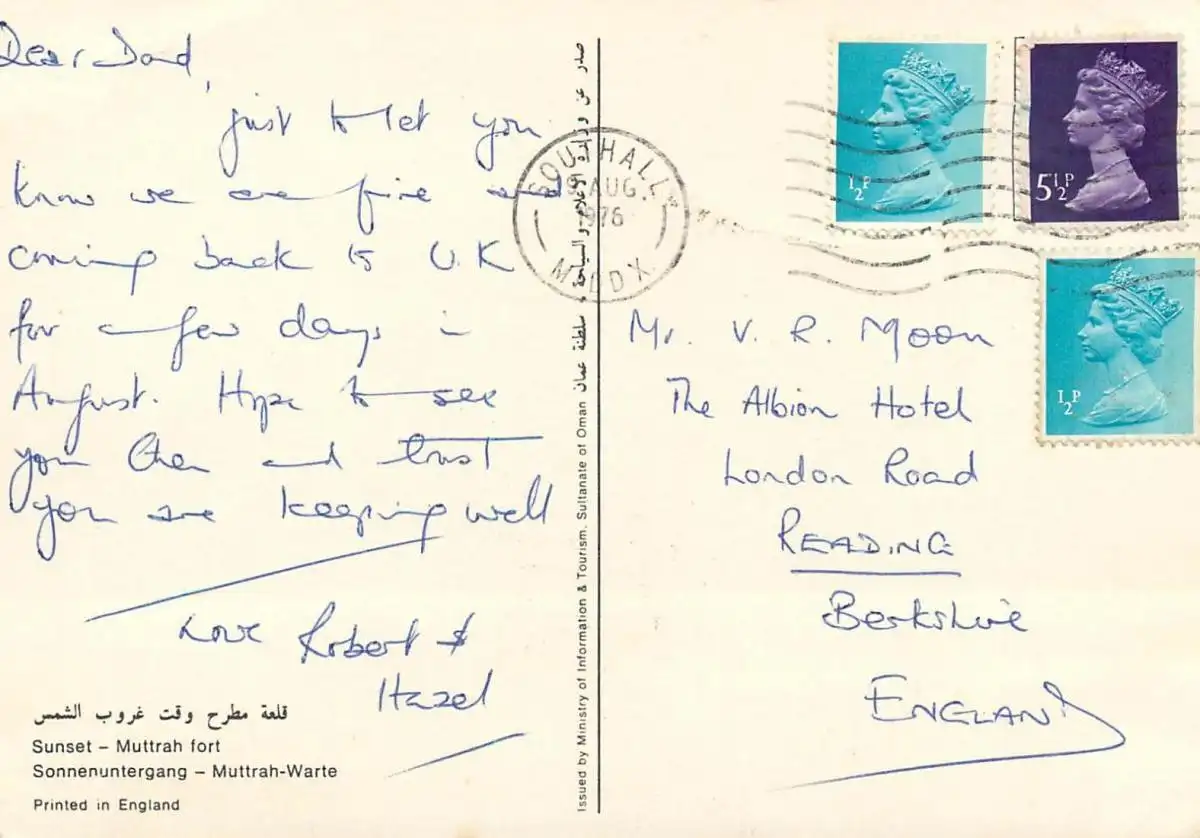 Dear Dad,
just to let you
know we are fine and
coming back to U.K
for a few days in
August. Hope to see
you then and trust
you are keeping well
Love Robert &
Hazel
قلعة مطرح وقت غروب الشمس
Sunset – Muttrah fort
Sonnenuntergang – Muttrah-Warte
Printed in England
Issued by Ministry of Information & Tourism. Sultanate of Oman صدر عن وزارة الاعلام والسياحة ، سلطنة عمان
SOUTHALL
AUG.
1976
MIDDX
½P
5½P
½P
Mr. V. R. Moon
The Albion Hotel
London Road
READING
Berkshire
ENGLAND